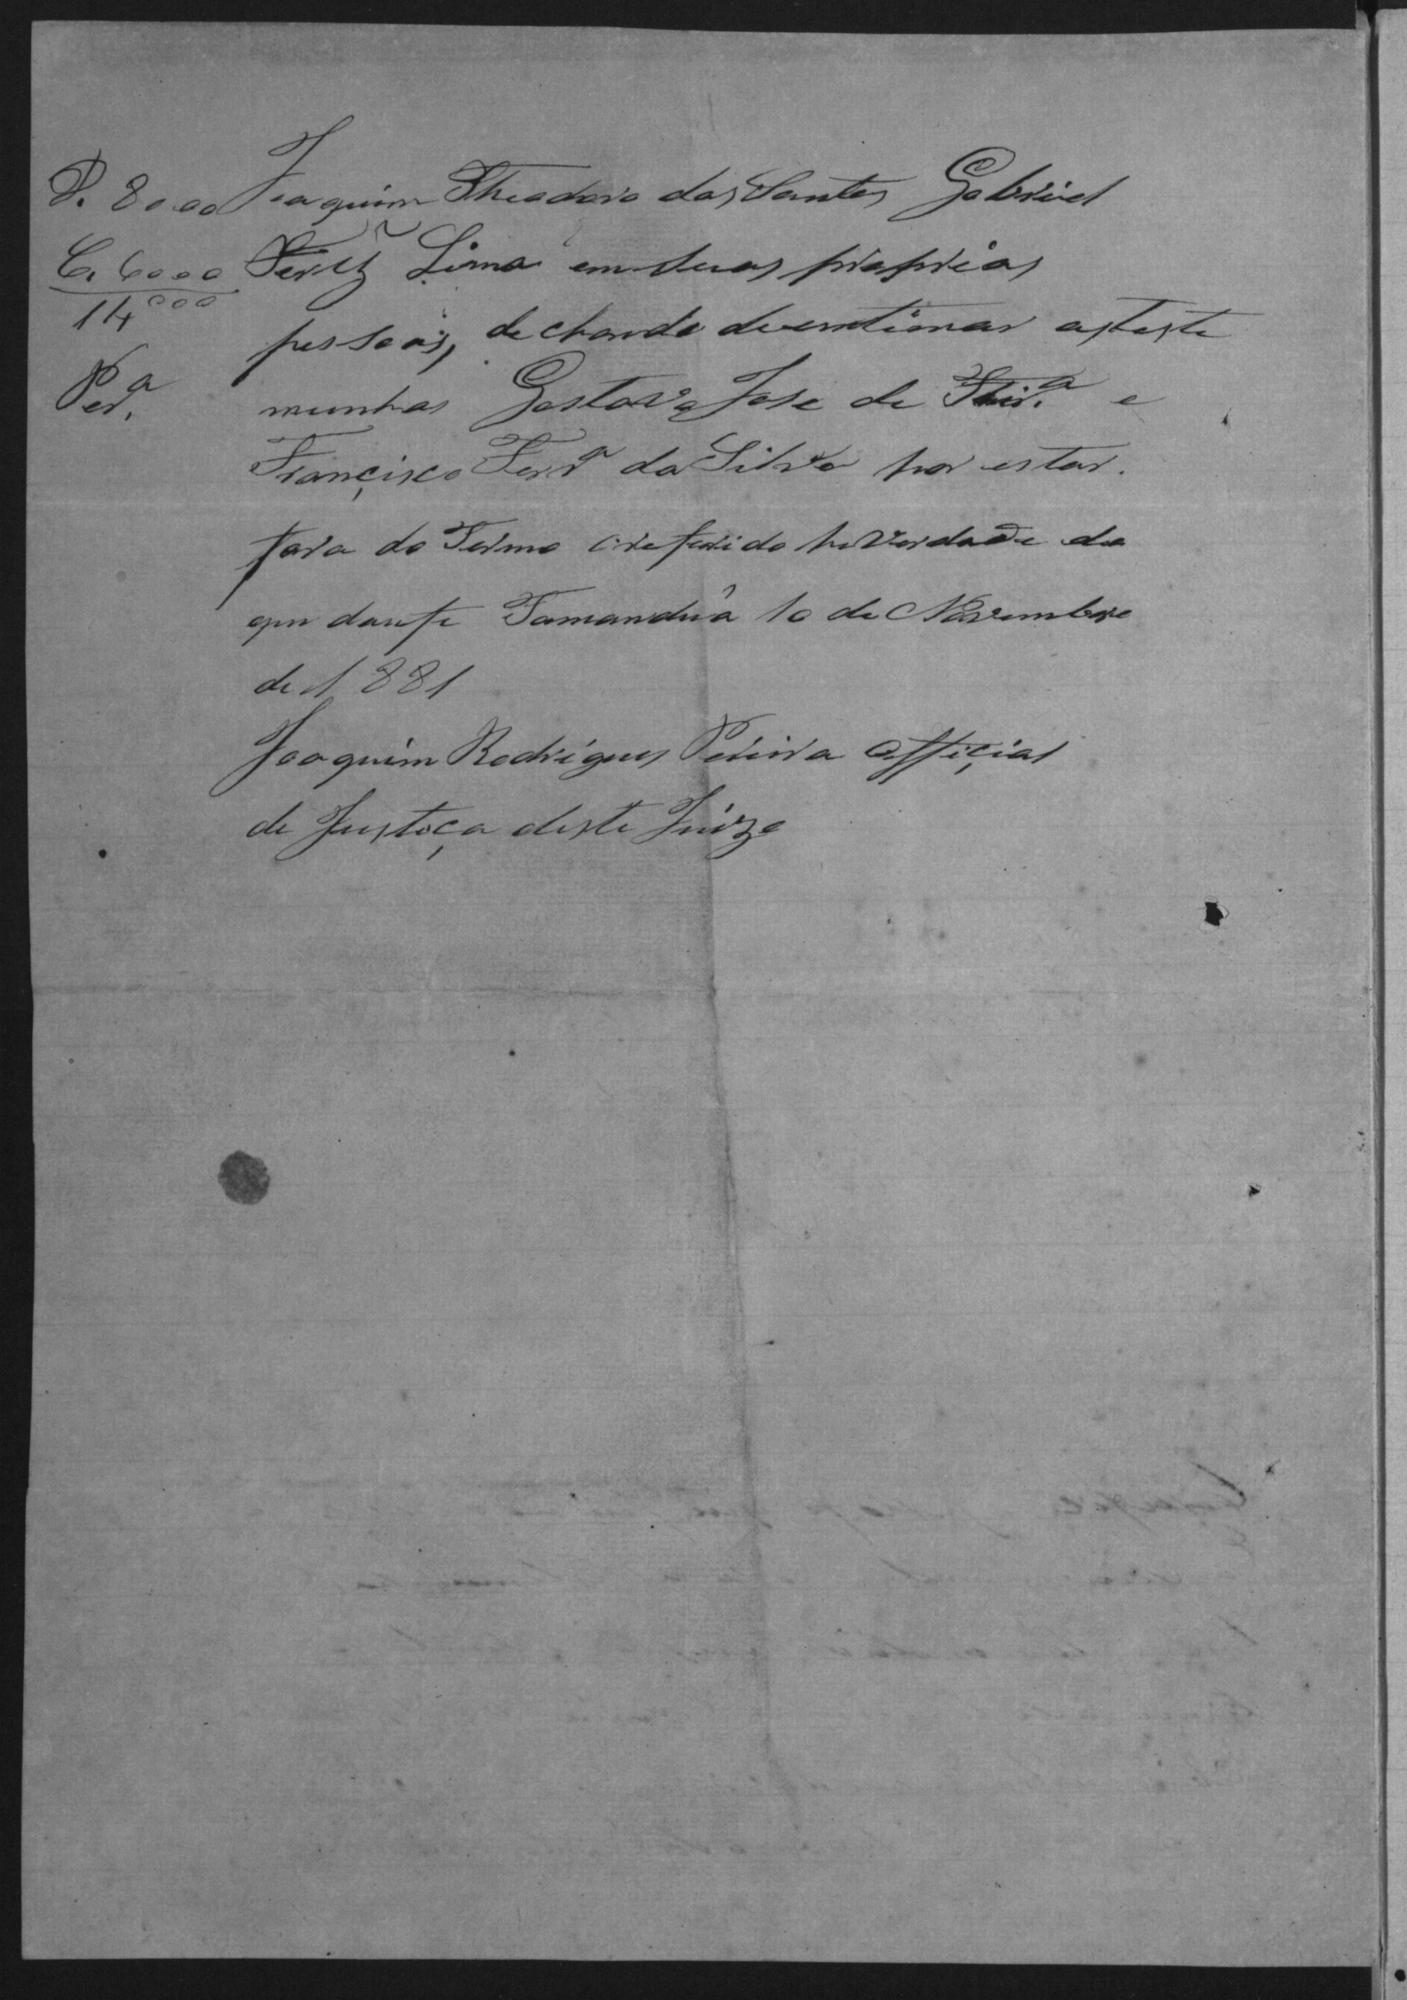 D. 8000 Joaquim Theodoro dos Santos Gabriel
C. 6000 Lima em suas proprias
14000
pessoas, dechando de entimar as teste
Per.ª
munhas Gostavo Jose de e
Francisco Ferrª da Silva por estar.
fora do Termo o referido he verdade do
que dou fe Tamanduá 10 de Novembro
de 1881
Joaquim Rodrigues Pereira Official
de Justiça deste Juizo